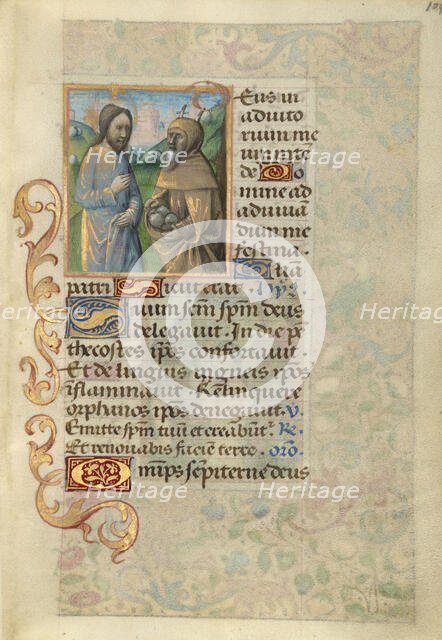 Eus in
adiuto
rium me
um inte
de Do
mine ad
adiuuā
dum me
festina.
Glia
patri Sicut erat. Hyp̄s
Suum scm̄ spm̄ deus
delegauit. In die pē
thecostes ip̄os confortauit.
Et de linguis igneis ip̄os
inflammauit. Relinquere
orphanos ip̄os denegauit. V.
Emitte spm̄ tuū et creabunt᷑ Re.
Et renouabis faciem terre. orō.
Omīps sēpiterne deus
Heritage
Heritage
Heritage
Heritage
Heritage
Heritage
Heritage
Heritage